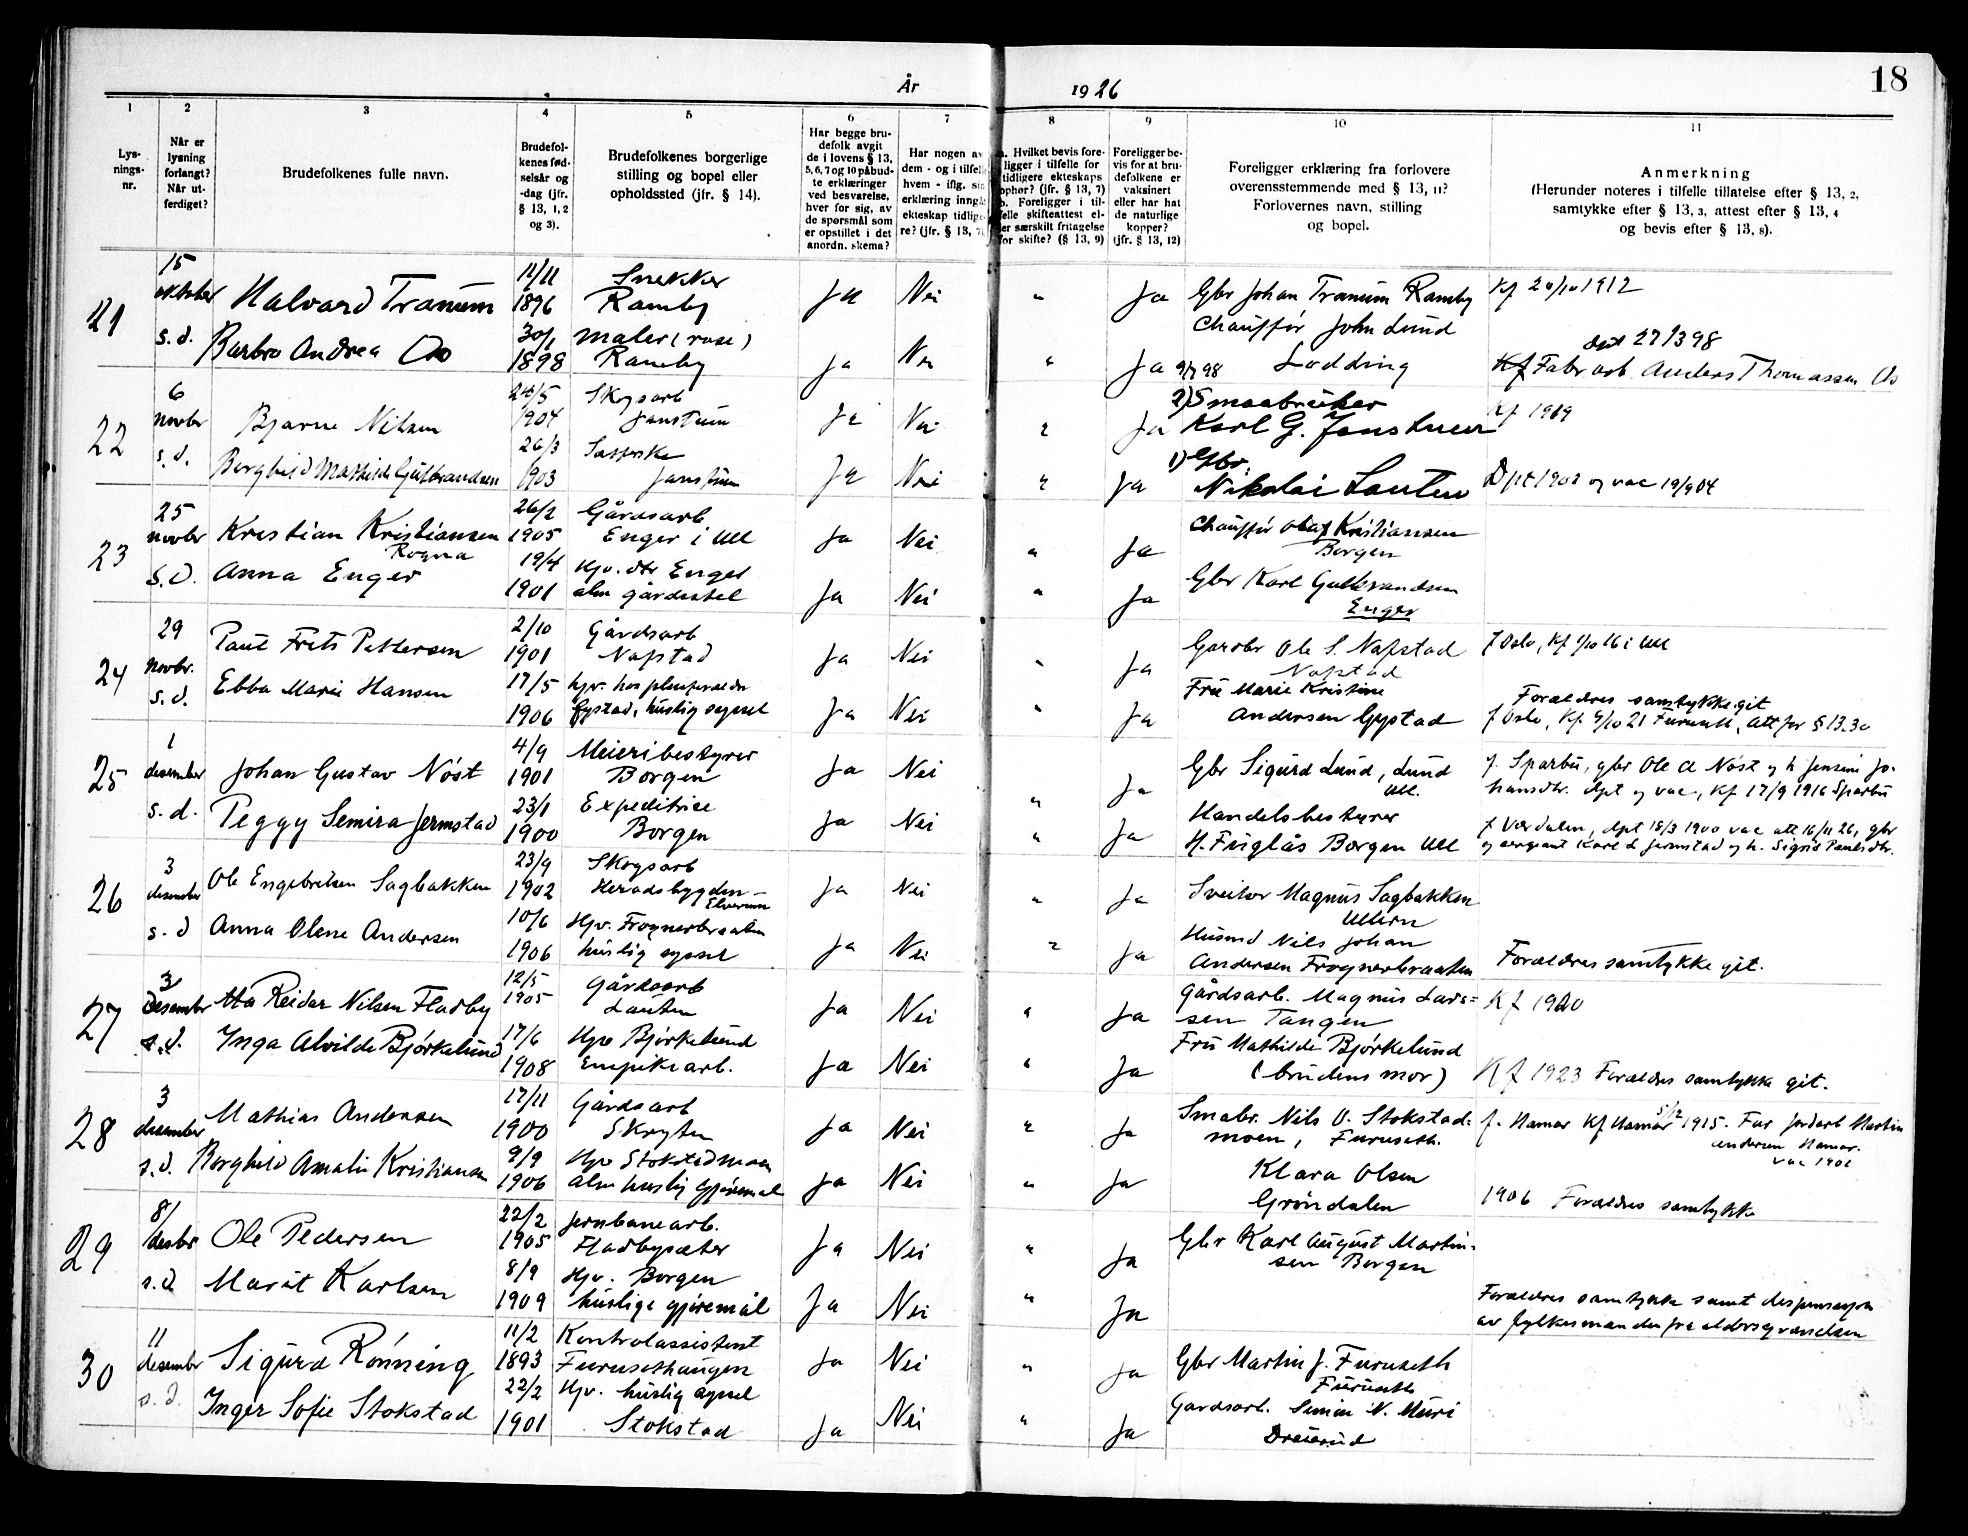 År 1926
18
1
2
3
4
5
6
7
8
9
10
11
Lys-
nings-
nr.
Når er
lysning
forlangt?
Når ut-
ferdiget?
Brudefolkenes fulle navn.
Brudefol-
kenes fød-
selsår og
-dag (jfr.
§ 13, 1, 2
og 3).
Brudefolkenes borgerlige
stilling og bopel eller
opholdssted (jfr. § 14).
Har begge bru-
defolk avgit
de i lovens § 13,
5, 6, 7 og 10 påbud-
te erklæringer
ved besvarelse,
hver for sig, av
de spørsmål som
er opstillet i det
anordn. skema?
Har nogen av
dem - og i tilfelle
hvem - iflg. sin
erklæring inngått
ekteskap tidlige-
re? (jfr. § 13, 7).
a. Hvilket bevis fore-
ligger i tilfelle for
tidligere ekteskaps
ophør? (jfr. § 13, 7)
b. Foreligger i til-
felle skifteattest el-
ler særskilt fritagelse
for skifte? (§ 13, 9)
Foreligger be-
vis for at bru-
defolkene er
vaksinert
eller har hat
de naturlige
kopper?
(jfr. § 13, 12)
Foreligger erklæring fra forlovere
overensstemmende med § 13, 11?
Forlovernes navn, stilling
og bopel.
Anmerkning
(Herunder noteres i tilfelle tillatelse efter § 13, 2,
samtykke efter § 13, 3, attest efter § 13, 4
og bevis efter § 13, 8).
21
15
oktober
s. d.
Halvard Tranum
11/11
1896
Snekker
Ramby
Ja Nei " Ja
Gbr Johan Tranum Ramby
Kf 20/10 1912
Barbro Andrea Os
30/1
1898
maler (rose)
Ramby
Ja Nei " Ja
Chauffør John Lund
Lodding
døpt 27/3 98
Fabr arb. Anders Thomassen Os
22
6
novbr
s. d.
Bjarne Nilsen
24/5
1904
Skogsarb
Janstuen
Ja Nei " Ja
2) Smaabruker
Karl G. Janstuen
Kf 1919
Borghild Mathilde Gulbrandsen
26/3
1903
Janstuen
Ja Nei " Ja
1) Gbr.
Nikolai Lauten
Dpt 1903 og vac 19/9 04
23
25
novbr
s. d.
Kristian Kristiansen
Rogna
26/2
1905
Gårdsarb
Enger i Ull
Ja Nei " Ja
Chauffør Olaf Kristiansen
Borgen
Anna Enger
19/4
1901
Hjv. dtr Enger
alm gårdsstel
Ja Nei " Ja
Gbr Karl Gulbrandsen
Enger
24
29
novbr.
s. d.
Paul Frits Pettersen
2/10
1901
Gårdsarb
Nafstad
Ja Nei " Ja
Garbr Ole S. Nafstad
Nafstad
f Oslo, Kf 1/10 16 i Ull
Ebba Marie Hansen
17/5
1906
hjv. hos pleiforældr
Gystad, huslig syssel
Ja Nei " Ja
Fru Marie Kristine
Andersen Gystad
Forældres samtykke git
f Oslo, Kf 9/10 21 Furuseth, Att for § 13.3c
25
1
desember
s. d.
Johan Gustav Nöst
4/9
1901
Meieribestyrer
Borgen
Ja Nei " Ja
Gbr Sigurd Lund, Lund
Ull.
f. Sparbu, gbr Ole A Nöst og h Jensine Jo-
hansdtr. døpt og vac, Kf 17/9 1916 Sparbu
Peggy Semira Jermstad
23/1
1900
Expeditrise
Borgen
Ja Nei " Ja
Handelsbestyrer
H. Fuglås Borgen Ull
f Værdalen, døpt 18/3 1900 vac att 16/11 26, gbr
og sergeant Karl L Jermstad og h. Sigrid Paulsdtr.
26
3
desember
s. d
Ole Engebretsen Sagbakken
23/9
1902
Skogsarb
Heradsbygden -
Elverum
Ja Nei " Ja
Sveitser Magnus Sagbakken
Ullern
Anna Olene Andersen
10/6
1906
Hjv. Frognerbraaten
huslig syssel
Ja Nei " Ja
Husmd Nils Johan
Andersen Frognerbraaten
Forældres samtykke git.
27
3
Desember
s. d.
Otto Reidar Nilsen Fladby
12/5
1905
Gårdsarb
Lauten
Ja Nei " Ja
Gårdsarb. Magnus Lars=
sen Tangen
Kf 1920
Inga Alvilde Bjørkelund
17/6
1908
Hjv Bjørkelund
Empikearb.
Ja Nei " Ja
Fru Mathilde Bjørkelund
(brudens mor)
Kf 1923 Forældres samtykke git.
28
3
desember
s. d.
Mathias Andersen
17/11
1900
Gårdsarb
Skryten
Ja Nei " Ja
Smabr. Nils O. Stokstad-
moen, Furuseth.
f. Hamar Kf Hamar 5/12 1915. Far jordarb Martin
Andersen Hamar.
vac 1901
Borghild Amalie Kristiansen
9/9
1906
Hjv Stokstadmoen
Alm huslig gjøremål
Ja Nei " Ja
Klara Olsen
Gröndalen
1906 Forældres samtykke
29
8/
desbr
s. d
Ole Pedersen
22/2
1905
Jernbanearb.
Fladbysæter
Ja Nei " Ja
Gbr Karl August Martin-
sen Borgen
Marit Karlsen
8/9
1909
Hjv. Borgen
huslige gjøremål
Ja Nei " Ja
Forældres samtykke samt dispensasjon
av fylkesmanden fra aldersgrænsen
30
11
desember
s. d.
Sigurd Rönning
11/2
1893
Kontrolassistent
Furusethaugen
Ja Nei " Ja
Gbr Martin J. Furuseth
Furuseth
Inger Sofie Stokstad
22/2
1901
Hjv. huslig syssel
Stokstad
Ja Nei " Ja
Gardsarb. Simen N. Muri
Dreierud